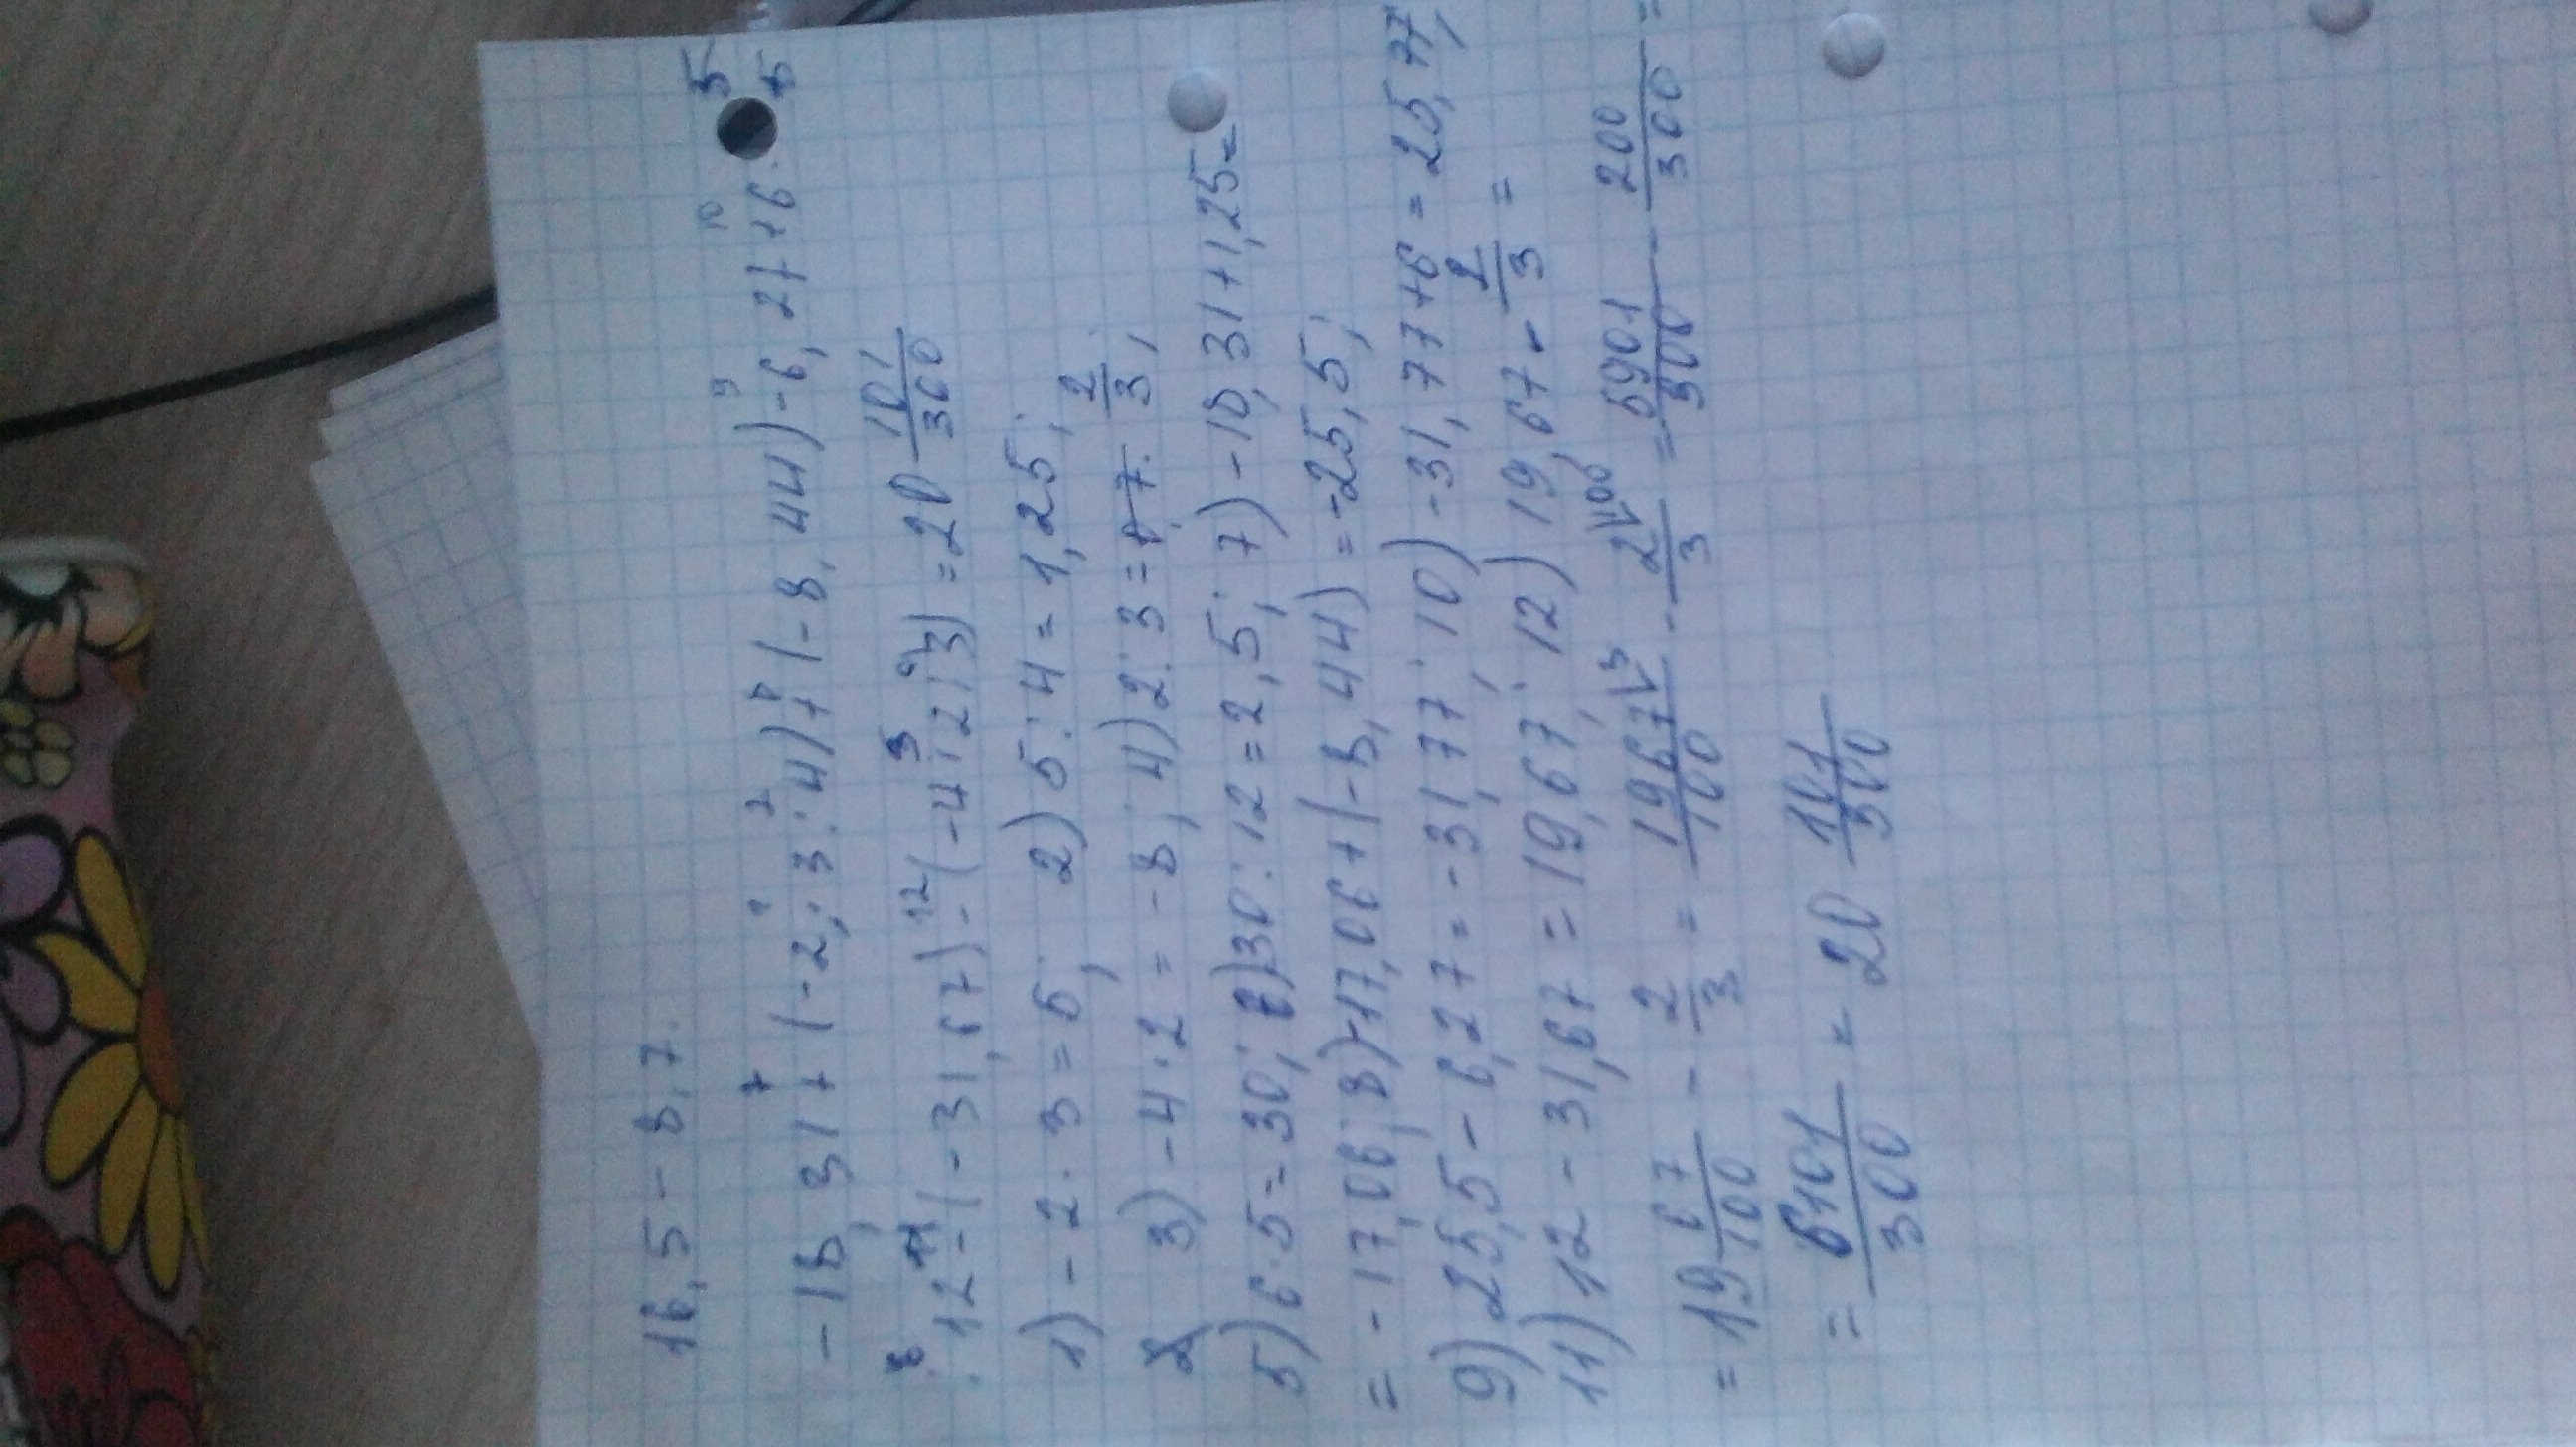 16,5-8,7.
-18,31+(-2;:3:4)+(-8,44)-6,27+6·5
:12-(-31,67)-(-4:2):3)=20 101/300
1)-2·3=6; 2)5:4=1,25;
3)-4:2=-8; 4)2:3= 2/3;
5)6·5=30; 6)30:12=2,5; 7)-18,31+1,25=
=-17,06; 8)-17,06+(-8,44)=-25,5;
9)25,5-6,27=-31,77; 10)-31,77+6=25,77;
11)12-31,67=19,67; 12)19,67-2/3=
=19 67/100-2/3=1967\3/100-2\100/3=5901/300-200/300=
=6101/300=20 101/300